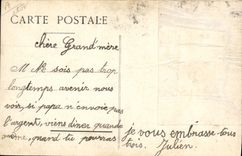 CARTE POSTALE
chère Grand'mère
Ne sois pas trop
longtemps. avenir nous
voir, si papa n'envoie pas
l'argent, viens dîner quand
même, quand tu pourras
je vous embrasse tous
trois. Julien.